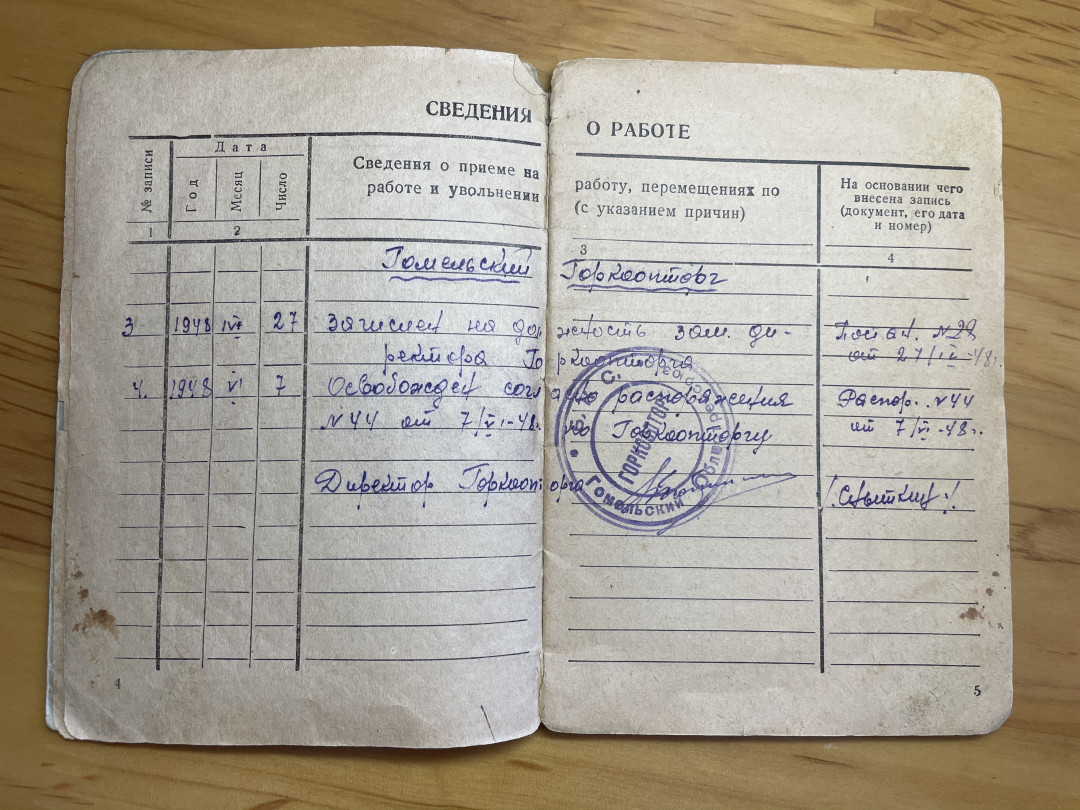 СВЕДЕНИЯ О РАБОТЕ
№ записи
Дата
Год
Месяц
Число
Сведения о приеме на работу, перемещениях по
работе и увольнении (с указанием причин)
На основании чего
внесена запись
(документ, его дата
и номер)
1 2 3 4
Гомельский Горкоопторг
3 1948 IV 27 Зачислен на должность зам. ди- Постан. №28
ректора Горкоопторга от 27/IV-48г.
4. 1948 VI 7 Освобожден согласно распоряжения Распор. №44
№44 от 7/VI-48г. по Горкоопторгу от 7/VI-48г.
Директор Горкоопторга
ГОРКООПТОРГ
Гомельский
4
5